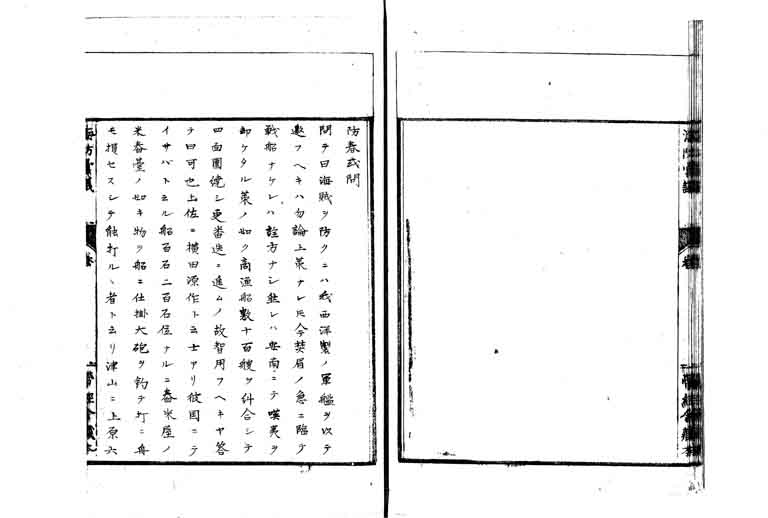 防春或問
問テ曰海賊ヲ防クニハ我西洋製ノ軍艦ヲ以テ
邀フヘキハ勿論上策ナレ𪜈今焚眉ノ急ニ臨テ
戰船ナケレハ詮方ナシ然レハ安南ニテ嘆夷ヲ
卻ケタル策ノ如ク商漁船數十百艘ヲ糾合シテ
四面圍繞シ更番迭ニ進ムノ故智用フヘキヤ答
テ曰可也土佐ニ横田源作ト云士アリ彼國ニテ
イサバト云ル船百石二百石位ナルニ舂米屋ノ
米舂臺ノ如キ物ヲ船ニ仕掛大砲ヲ釣テ打ニ舟
モ損セスシテ能打ルヽ者ト云リ津山ニ上原六
海防彙議 卷